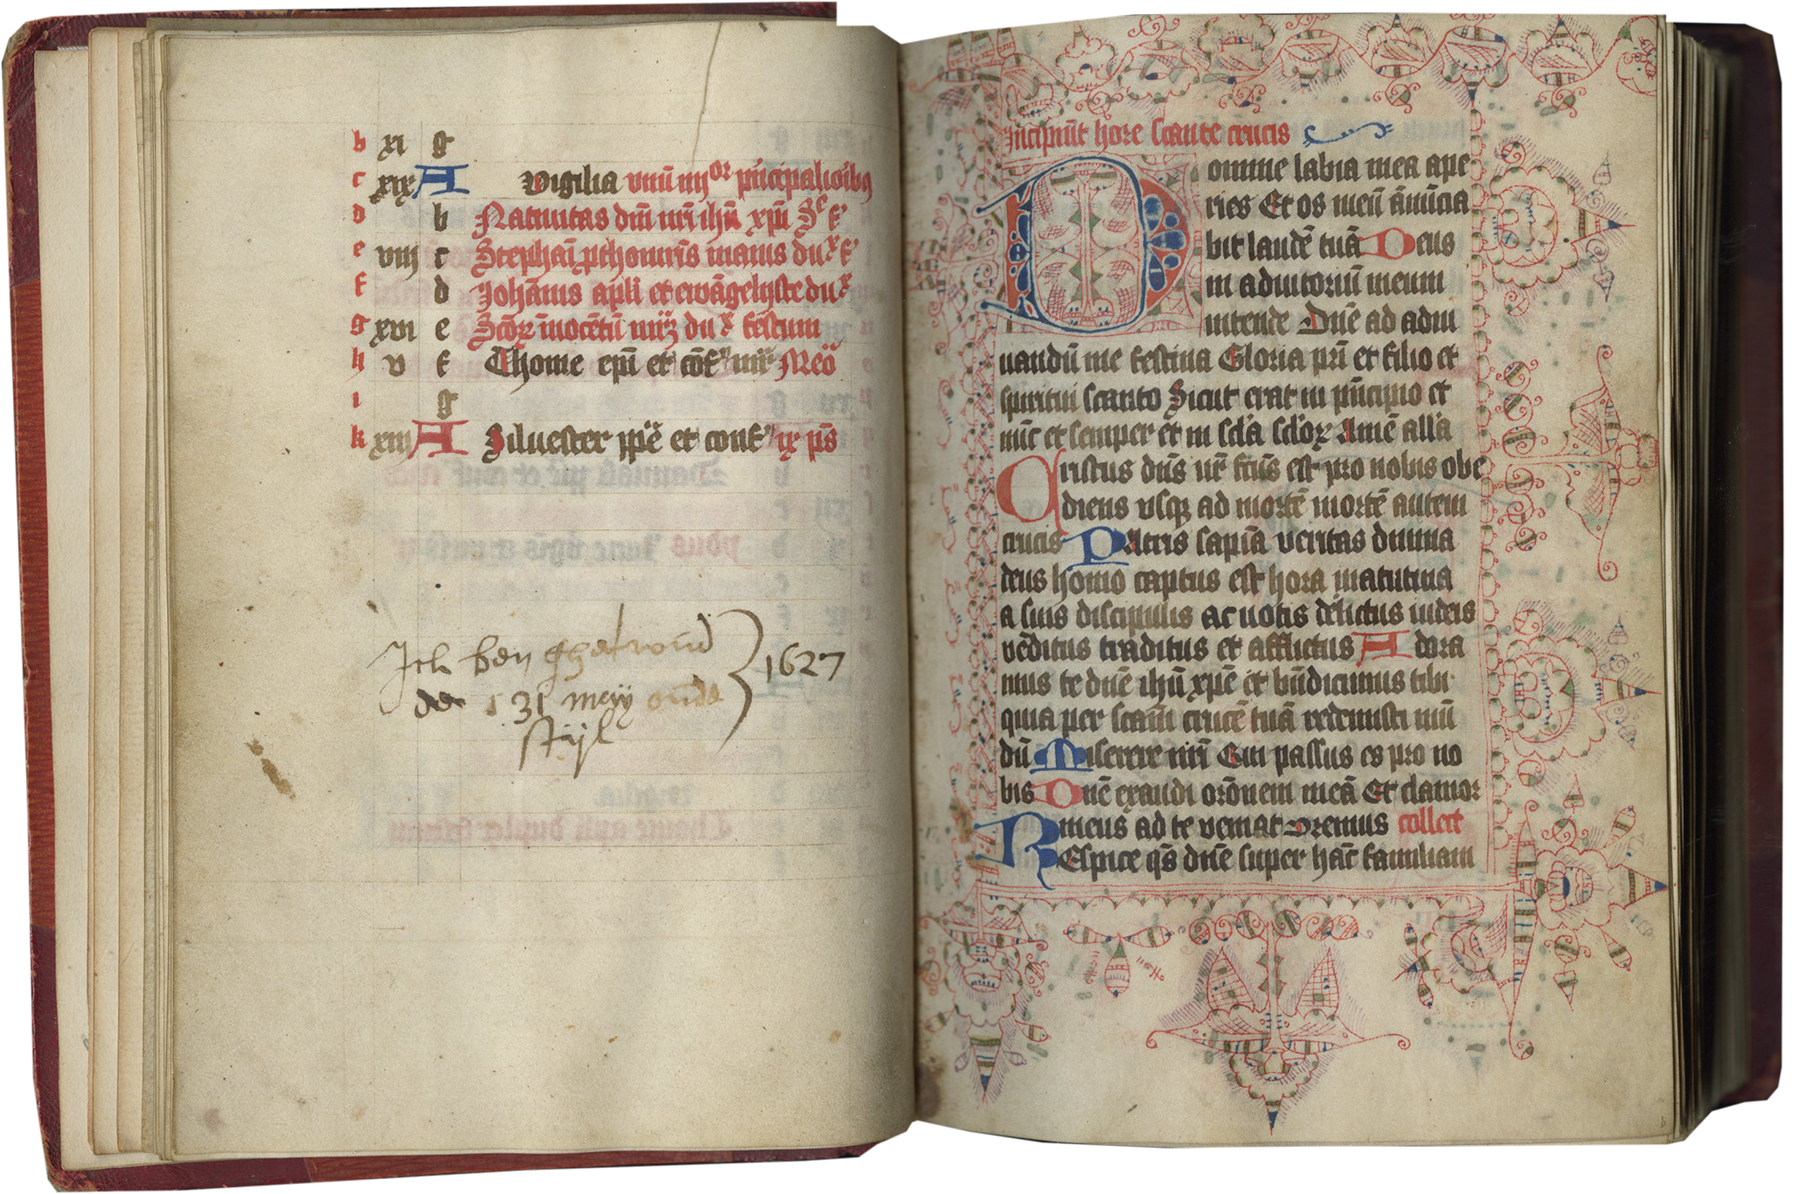 b xi g
c xix A Vigilia vnū iiij or principalioribꝫ
d b Natiuitas dm̄ nr̄i ihū xp̄i
e viij c Stephaī ꝓthomr̄is maius du
f d Johānis apl̄i et ewāgeliste du
g xvi e Scōꝝ īnocētū du festum
h v f Thome ep̄i et mr̄ Meō
i g
k xiij A Siluester pp̄e et conf ix ps̄
Ich ben ghetroud
de 31 meij oude } 1627
stijl
Incipiūt hore scante crucis
Domine labia mea ape
ries Et os meū ānūcia
bit laudē tuā Deus
in adiutoriū meum
intende Dn̄e ad adiu
uandū me festina Gloria pr̄i et filio et
spiritui scanto Sicut erat in pn̄cipio et
nūc et semper et in sc̄la sc̄loꝝ Amē all̄a
Cristus dn̄s nr̄ fc̄us est pro nobis obe
diens vsqꝫ ad mortē mortē autem
crucis Patris sapīa veritas diuina
deus homo captus est hora matutina
a suis discipulis ac notis delictus iudeis
vēditus traditus et afflictus Adora
mus te dn̄e ihū xp̄e et bn̄dicimus tibi
quia per scām crucē tuā redemisti mū
dū Miserere nr̄i Qui passus es pro no
bis Dn̄e exaudi orōnem meā Et clamor
meus ad te veniat Oremus collect
REspice qs̄ dn̄e super hāc familiam